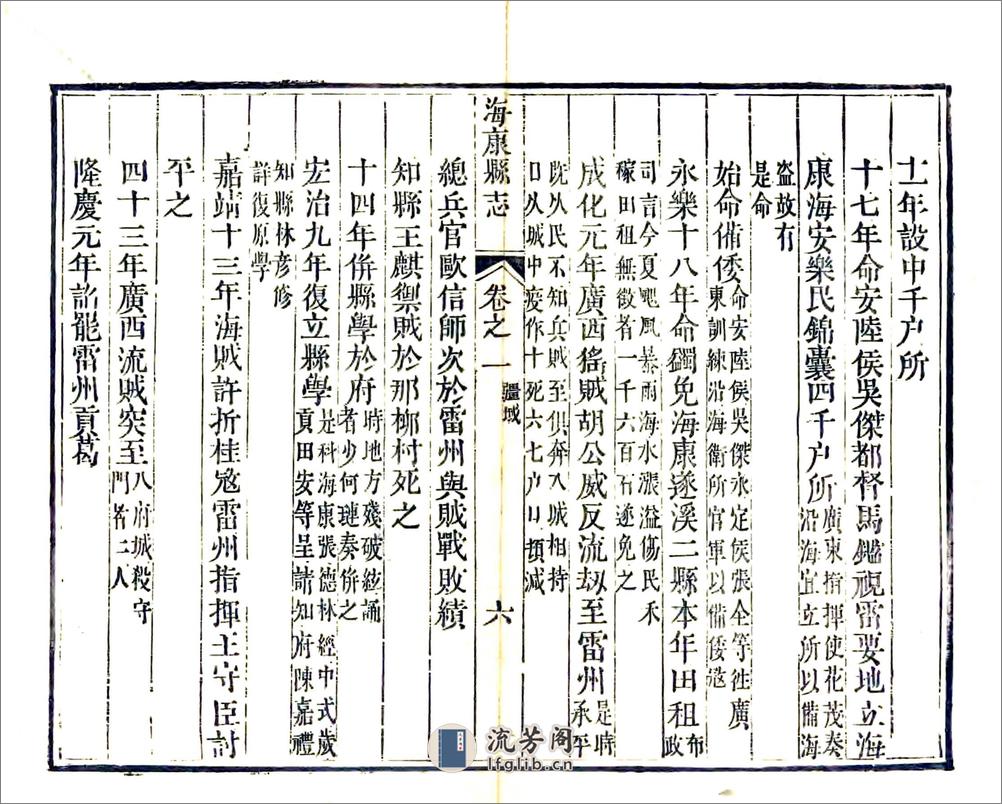 十一年設中千户所
十七年命安陸侯吳傑都督馬鑑視雷要地立海
康海安樂民錦囊四千户所廣東指揮使花茂奏沿海宜立所以備海
盜故有是命
始命備倭命安陸侯吳傑永定侯張全等往廣東訓練沿海衛所官軍以備倭寇
永樂十八年命蠲免海康遂溪二縣本年田租布政
司言今夏颶風暴雨海水漲溢傷民禾稼田租無徵者一千六百石遂免之
成化元年廣西猺賊胡公威反流刼至雷州是時承平
既久民不知兵賊至俱奔入城相持日久城中疫作十死六七户口頓減
海康縣志 卷之一 疆域 六
總兵官歐信師次於雷州與賊戰敗績
知縣王麒禦賊於那柳村死之
十四年併縣學於府時地方殘破絃誦者少何璉奏併之
宏治九年復立縣學是科海康張德林經中式歲貢田安等呈請知府陳嘉禮
知縣林彥修詳復原學
嘉靖十三年海賊許折桂寇雷州指揮王守臣討
平之
四十三年廣西流賊突至入府城殺守門者二人
隆慶元年詔罷雷州貢葛
流芳阁
lfglib.cn